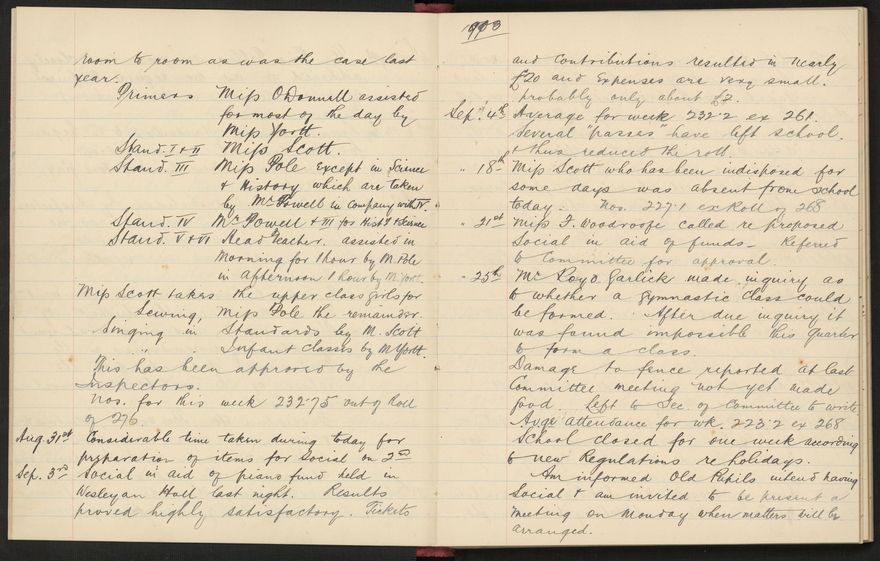 room to room as was the case last
year.
Primers Miss O'Donnell assisted
for most of the day by
Miss Yortt.
Stand. I & II Miss Scott.
Stand. III Miss Pole except in Science
& History which are taken
by Mr Powell in Company with IV.
Stand. IV Mr Powell & III for Hist. & Science
Stand. V & VI Head Teacher. assisted in
Morning for 1 hour by M. Pole
in afternoon 1 hour by M. Yortt.
Miss Scott takes the upper class girls for
Sewing, Miss Pole the remainder.
Singing in Standards by M. Scott
" " Infant Classes by M Yortt.
This has been approved by the
Inspectors.
Nos. for this week 232.75 out of Roll
of 276.
Aug. 31st Considerable time taken during today for
preparation of items for Social on 2nd
Sep. 3rd Social in aid of piano fund held in
Wesleyan Hall last night. Results
proved highly satisfactory. Tickets
903
and Contributions resulted in nearly
£20 and Expenses are very small.
probably only about £2.
Sept. 4th Average for week 232.2 ex 261.
Several "passes" have left school.
& thus reduced the roll.
" 18th Miss Scott who has been indisposed for
some days was absent from school
today. Nos. 227.1 ex Roll of 268
" 21st Miss F. Woodroofe called re proposed
Social in aid of funds - Referred
to Committee for approval.
" 25th Mr Roy Garlick made inquiry as
to whether a Gymnastic Class could
be formed. After due inquiry it
was found impossible this quarter
to form a class.
Damage to fence reported at last
Committee meeting not yet made
good. Left to Sec. of Committee to write
Avge attendance for wk. 223.2 ex 268
School closed for one week according
to new Regulations re holidays.
Am informed Old Pupils intend having
Social & am invited to be present a
meeting on Monday when matters will be
arranged.